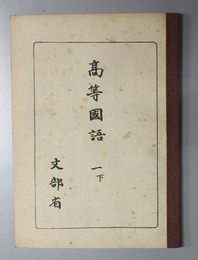 高等國語
一下
文部省